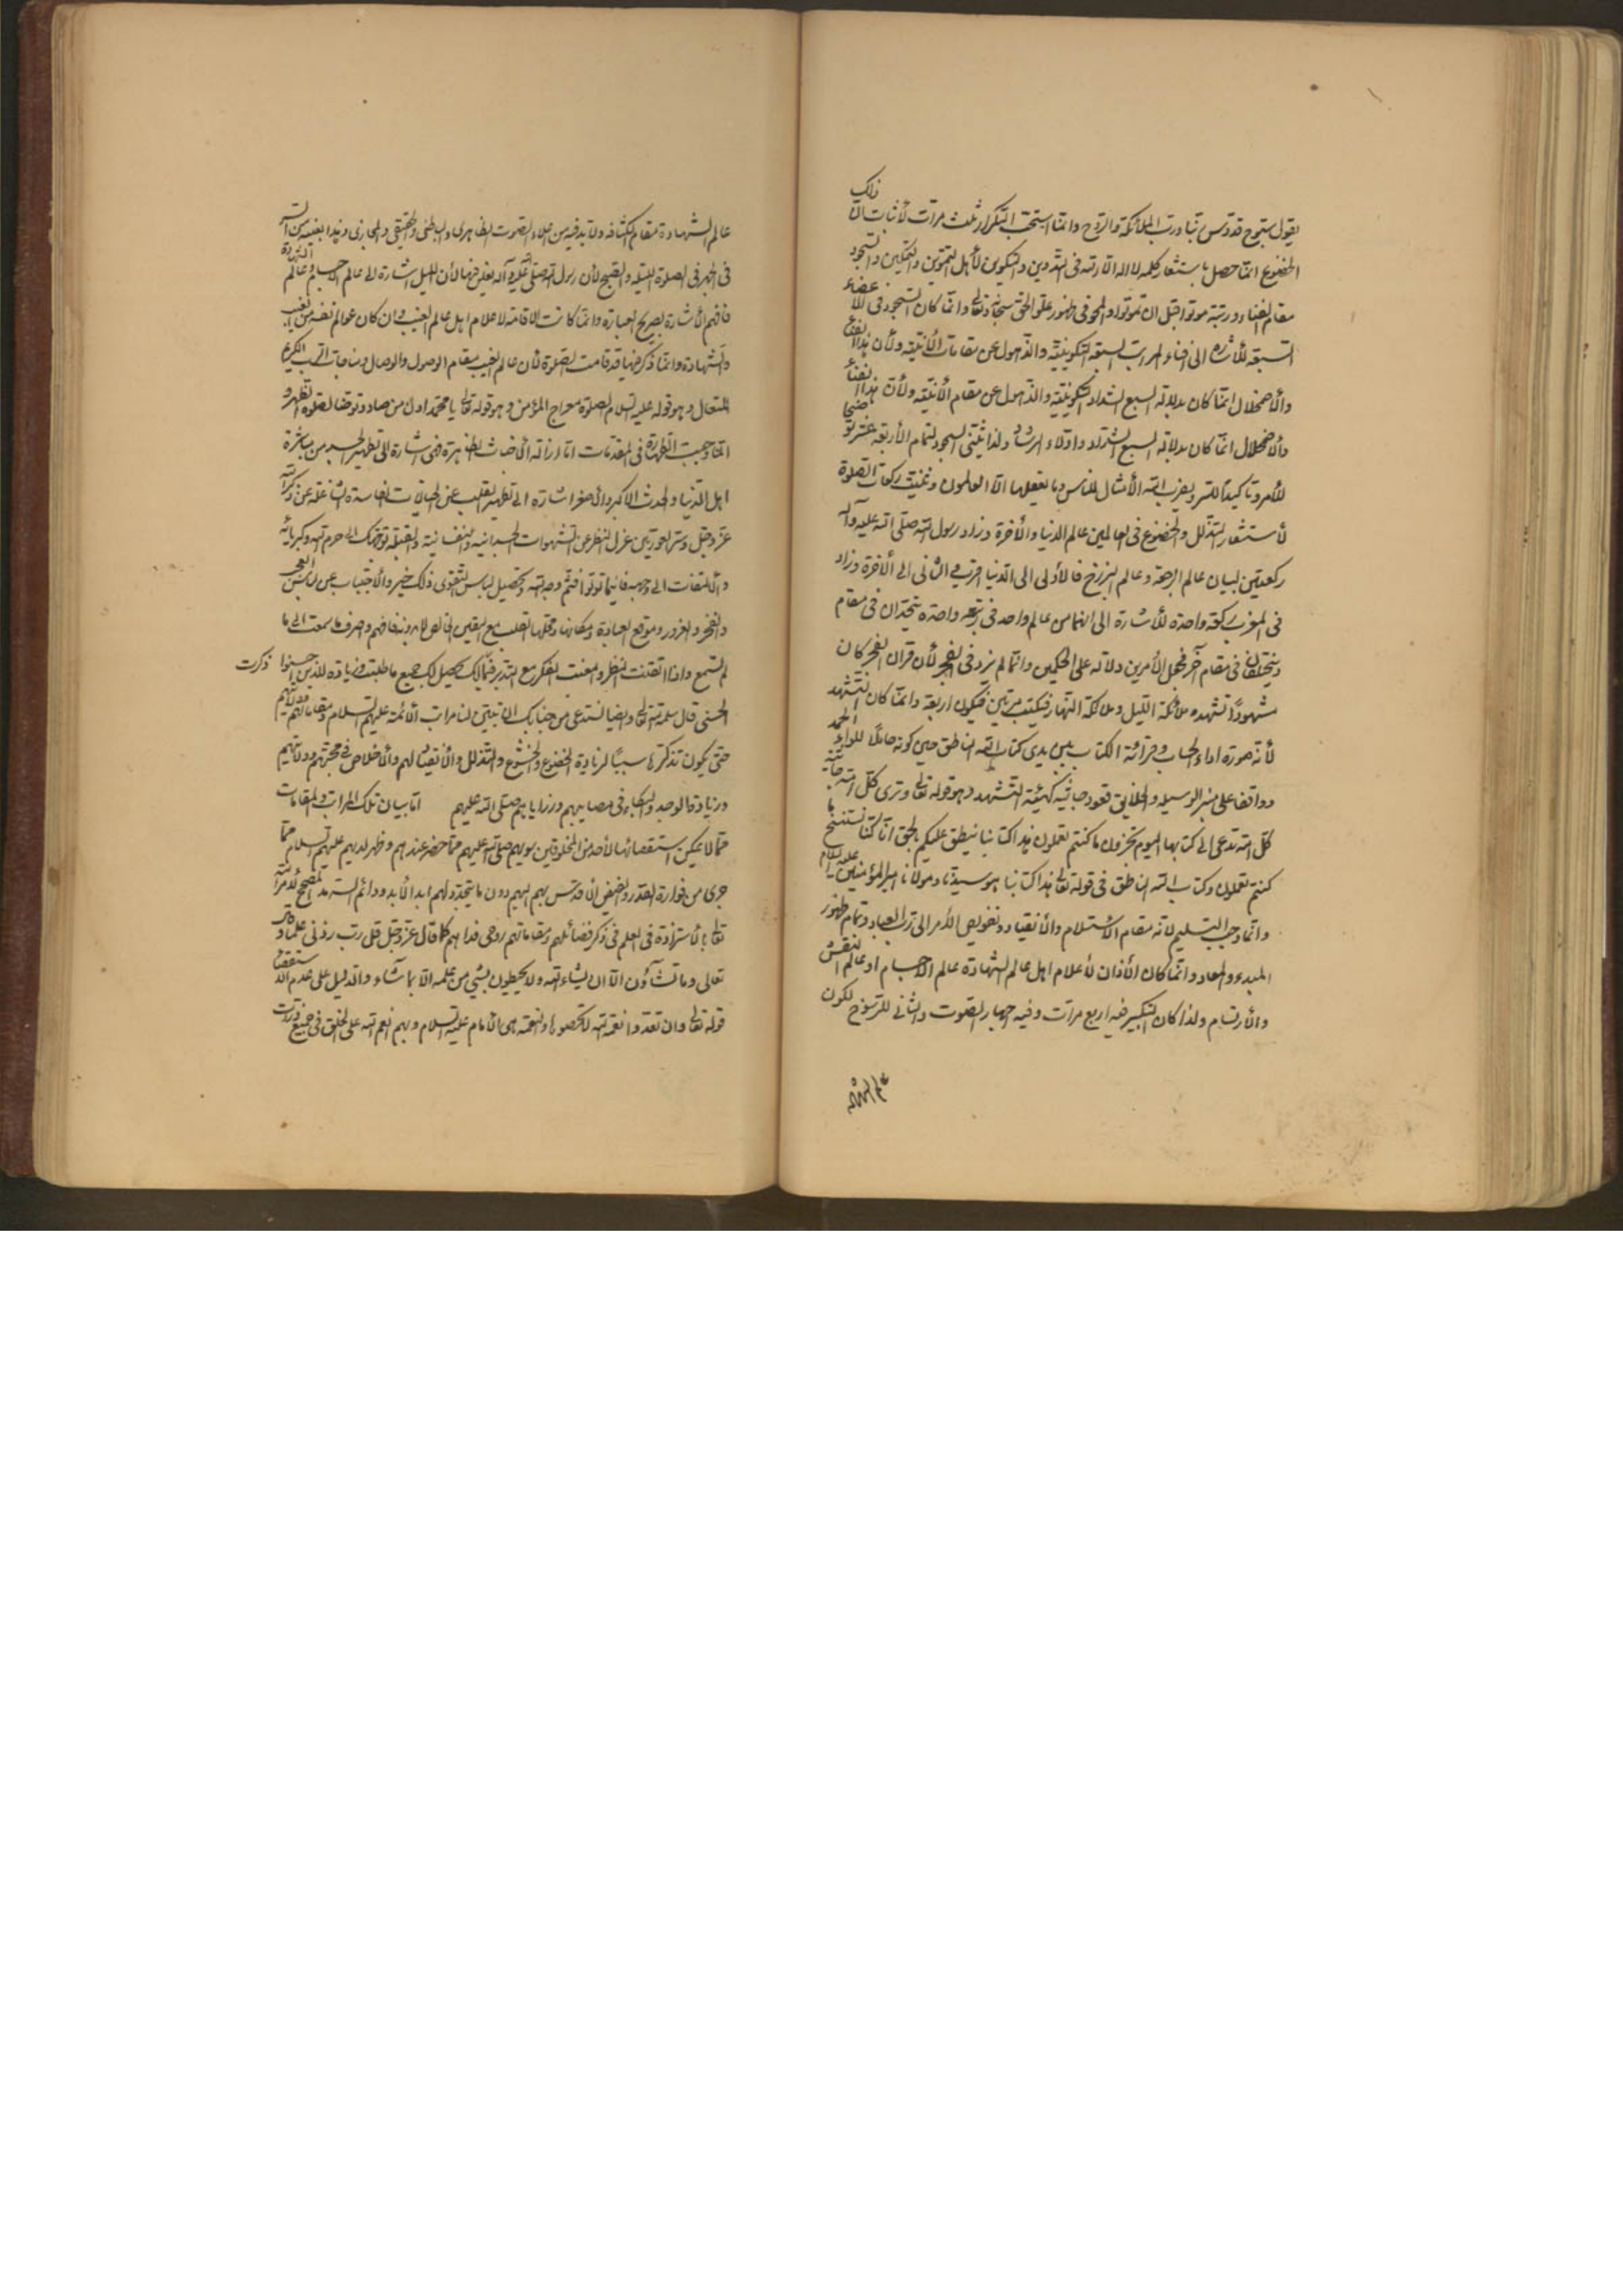 يقول سبوح قدوس ربنا ورب الملائكة والروح وانما استحب التكرار ثلث مرات لأثبات ان ذلك
الخضوع انما حصل باستشعار كلمة لا اله الا الله في التدوين والتكوين لأهل التموين والتمكين والسجود
مقام الفناء ورتبة موتوا قبل ان تموتوا والمحو في ظهور علو الحق سبحانه وتعالى وانما كان السجود في الأعضاء
السبعة للأشارة الى افناء المراتب السبعة التكوينية والذهول عن مقامات الأنية ولأن هذا الفناء
والأضمحلال انما كان بدلالة السبع الشداد التكوينية والذهول عن مقام الأنية ولأن هذا الفناء
والأضمحلال انما كان بدلالة السبع الشداد وأولاء الرشاد ولذا يثنى السجود لتمام الأربعة عشر
للأمر وتأكيدا للسر ويضرب الله الأمثال للناس وما يعقلها الا العالمون وثنيت ركعات الصلوة
لأستشعار التذلل والخضوع في العالمين عالم الدنيا والأخرة وزاد رسول الله صلى الله عليه وآله
ركعتين لبيان عالم الرجعة وعالم البرزخ فالأولى الى الدنيا اقرب والثاني الى الأخرة وزاد
في المغرب ركعة واحدة للأشارة الى ان عالم واحد في رتبة واحدة يتحدان في مقام
ويختلفان في مقام آخر فجعل الأمرين دلالة على الحكمين وانما لم يزد في الفجر لأن قران الفجر كان
مشهودا تشهده ملائكة الليل وملائكة النهار فيكتب مرتين فيكون اربعة وانما كان التشهد
لأنه صورة اداء الحساب وقرائة الكتاب بين يدي كتاب الله الناطق حين كونه حاملا للواء الحمد
وواقفا على منبر الوسيلة والخلايق قعود جاثية كهيئة التشهد وهو قوله تعالى وترى كل امة جاثية
كل امة تدعى الى كتابها اليوم تجزون ما كنتم تعملون هذا كتابنا ينطق عليكم بالحق انا كنا نستنسخ ما
كنتم تعملون وكتاب الله الناطق في قوله تعالى هذا كتابنا هو سيدنا ومولانا امير المؤمنين عليه السلام
وانما وجب التسليم لأنه مقام الأستلام والأنقياد وتفويض الأمر الى رب العباد وتمام ظهور
المبدء والمعاد وانما كان الأذان لأعلام اهل عالم الشهادة عالم الأجسام او عالم النقش
والأرتسام ولذا كان التكبير فيه اربع مرات وفيه اجهار الصوت والثاني للرسوخ لكون
عالم الشهادة
عالم الشهادة مقام الكثافة ولابد فيه من اعلاء الصوت الظاهري والباطني والحقيقي والمجازي وهذا بعينه من السر
في الجهر في الصلوة الليلية والصبح لأن رسول الله صلى الله عليه وآله يغلس بها لأن الليل اشارة الى عالم الأجسام وعالم الشهادة
فافهم الأشارة بصريح العبارة وانما كانت الاقامة لاعلام اهل عالم الغيب وان كان عوالم نفسه من الغيب
والشهادة وانما ذكر فيها قد قامت الصلوة لأن عالم الغيب مقام الوصول والوصال ومناجات الرب الكريم
المتعال وهو قوله عليه السلام الصلوة معراج المؤمن وهو قوله تعالى يا محمد ادن من صاد وتوضأ لصلوة الظهر و
انما وجبت الطهارة في المقدمات اما ازالة الأخباث الظاهرة فهي اشارة الى تطهير الجسد من مباشرة
اهل الدنيا والحدث الاكبر والأصغر اشارة الى تطهير القلب عن الخيالات الفاسدة الشاغلة عن ذكر الله
عز وجل وستر العورتين عزل النظر عن الشهوات الجسدانية والنفسانية والقبلة توجهك الى حرم الله وكبريائه
والألتفات الى وجهه فاينما تولوا فثم وجه الله وتحصيل لباس التقوى ذلك خير والأجتناب عن لباس العجب
والفخر والغرور وموقع العبادة ومكانها ومحلها القلب مع اليقين فافهم واصرف ما سمعت الى ما
لم تسمع واذا اتقنت النظر وامعنت الفكر مع التدبر فيما ذكرت لك يحصل لك جميع ما طلبت وزيادة للذين احسنوا
الحسنى قال سلمه الله تعالى وايضا نستدعي من جنابك ان تبين لنا مراتب الأئمة عليهم السلام ومقاماتهم
حتى يكون تذكرها سببا لزيادة الخضوع والخشوع والتذلل والأنقياد لهم والأخلاص في محبتهم وولايتهم
وزيادة الوجد والبكاء في مصايبهم ورزاياهم صلى الله عليهم اما بيان تلك المراتب والمقامات
مما لا يمكن استقصائها لأحد من المخلوقين سويهم صلى الله عليهم مما حضر عندهم وظهر لديهم عليهم السلام مما
جرى من فوارة القدر والفيض الأقدس بهم اليهم دون ما يتجدد لهم ابد الأبد ودائم السرمد
تعالى بالأستزادة في العلم في ذكر فضائلهم ومقاماتهم روحي فداهم كما قال عز وجل قل رب زدني علما وقال
تعالى وما تشآؤن الا ان يشاء الله ولا يحيطون بشيء من علمه الا بما شاء والدليل على عدم الاستقصاء
قوله تعالى وان تعدوا نعمة الله لا تحصوها والنعمة هي الأمام عليه السلام وبهم انعم الله على الخلق في جميع ذرات